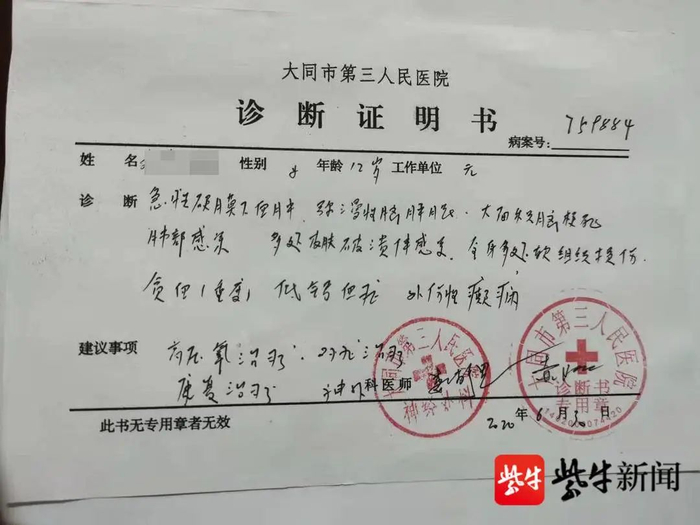 大同市第三人民医院
诊断证明书
病案号：759884
姓名 性别 女 年龄 12岁 工作单位 无
诊断 急性硬膜下血肿．弥漫性脑肿胀．大面积脑梗死
肺部感染 多处皮肤破溃伴感染．全身多处软组织损伤．
贫血(重度) 低钙血症 外伤性癫痫
建议事项 高压氧治疗．对症治疗
康复治疗 神外科医师
大同市第三人民医院
神经外科
大同市第三人民医院
诊断书
专用章
2020年6月30日
此书无专用章者无效
紫牛 紫牛新闻